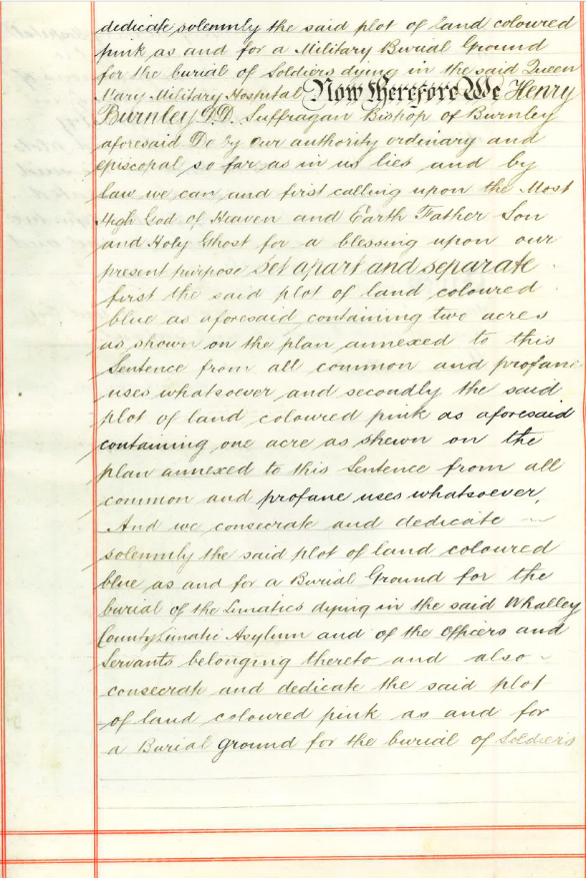 dedicate solemnly the said plot of land coloured
pink as and for a Military Burial Ground
for the burial of Soldiers dying in the said Queen
Mary Military Hospital Now therefore We Henry
Burnley D.D. Suffragan Bishop of Burnley
aforesaid Do by our authority ordinary and
episcopal so far as in us lies and by
law we can and first calling upon the Most
High God of Heaven and Earth Father Son
and Holy Ghost for a blessing upon our
present purpose set apart and separate
first the said plot of land coloured
blue as aforesaid containing two acres
as shown on the plan annexed to this
Sentence from all common and profane
uses whatsoever and secondly the said
plot of land coloured pink as aforesaid
containing one acre as shewn on the
plan annexed to this Sentence from all
common and profane uses whatsoever,
And we consecrate and dedicate
solemnly the said plot of land coloured
blue as and for a Burial Ground for the
burial of the Lunatics dying in the said Whalley
County Lunatic Asylum and of the Officers and
Servants belonging thereto and also
consecrate and dedicate the said plot
of land coloured pink as and for
a Burial ground for the burial of Soldiers